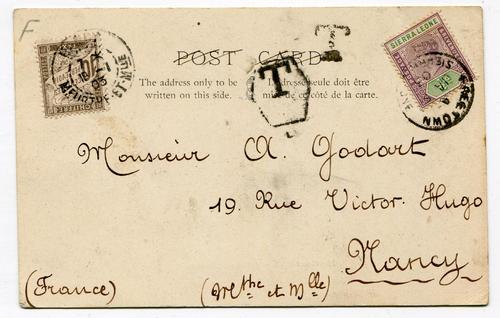 F
T
POST CARD
SIERRA LEONE
The address only to be written on this side.
L'adresse seule doit être mise de ce côté de la carte.
T
FREETOWN
MEURTHE-ET-MLLE
Monsieur A. Godart
19. Rue Victor Hugo
Nancy
(France)
(Mthe et Mlle)